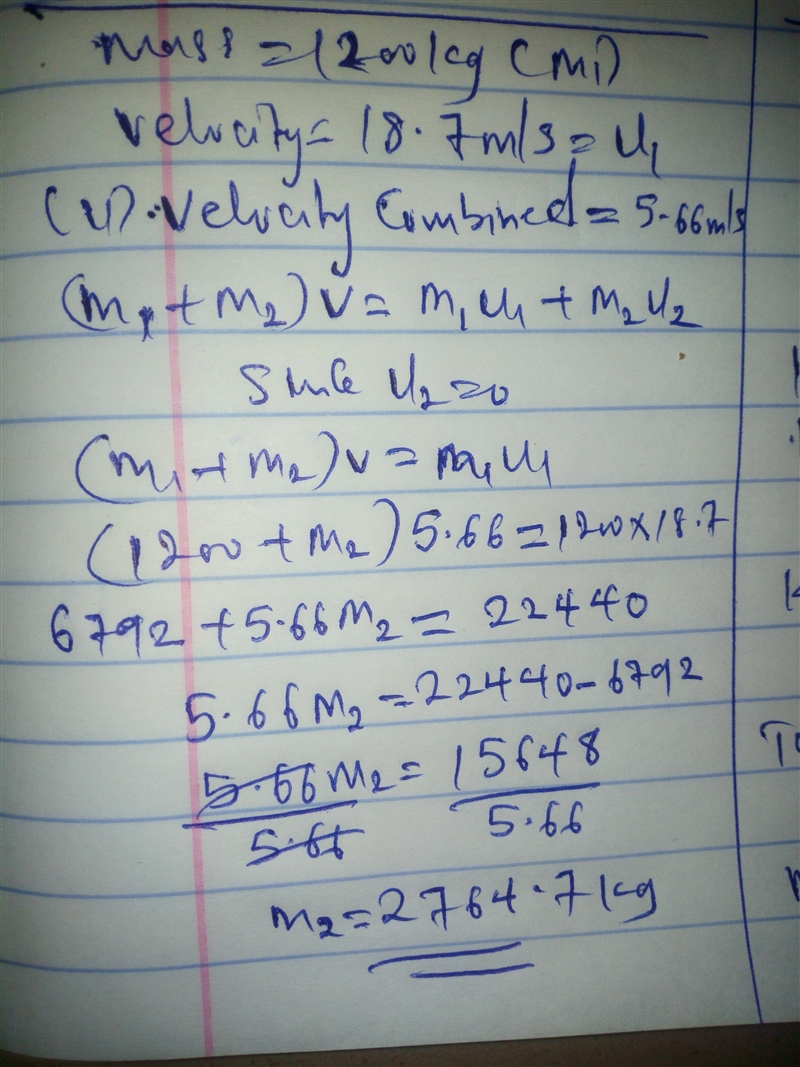 mass = 1200kg (M1)
velocity = 18.7m/s = U1
(V). velocity Combined = 5.66m/s
(m1 + m2) v = m1u1 + m2u2
Since U2 = 0
(m1 + m2) v = m1u1
(1200 + m2) 5.66 = 1200 x 18.7
6792 + 5.66m2 = 22440
5.66m2 = 22440 - 6792
5.66m2 = 15648
5.66 5.66
m2 = 2764.7kg